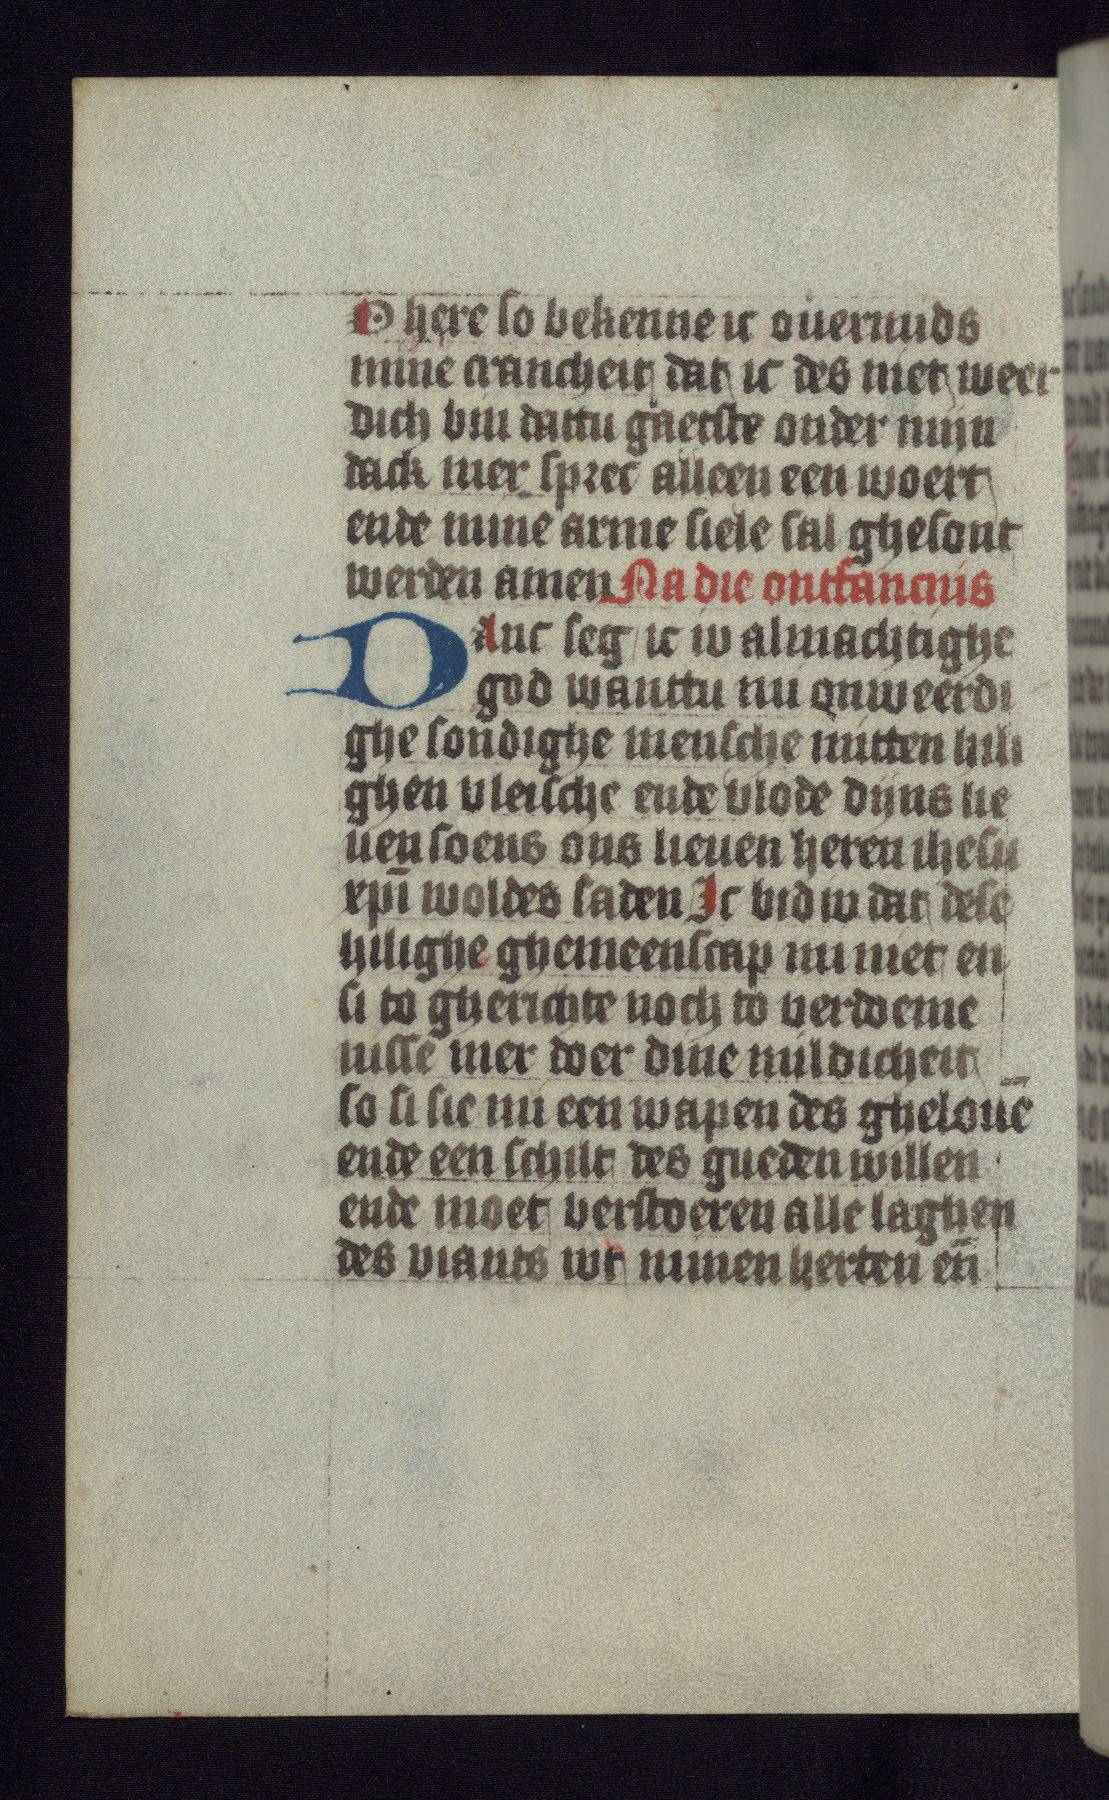 O here so bekenne ic ouermids
mine crancheit dat ic des niet weer
dich bin dattu gaetste onder mijn
dack mer sprec alleen een woert
ende mine arme siele sal ghesont
werden amen Na die ontfancnis
Danc seg ic w almachtighe
god wanttu mi onweerdi
ghe sondighe mensche mitten hili
ghen vleische ende blode dijns lie
uen soens ons lieuen heren ihesu
xpī woldes saden Ic bid w dat dese
hilighe ghemeenscap mi niet en
si to gherichte noch to verdoeme
nisse mer doer dine mildicheit
so si sie mi een wapen des ghelouē
ende een schilt des gueden willen
ende moet verstoeren alle laghen
des viants wt minen herten eñ